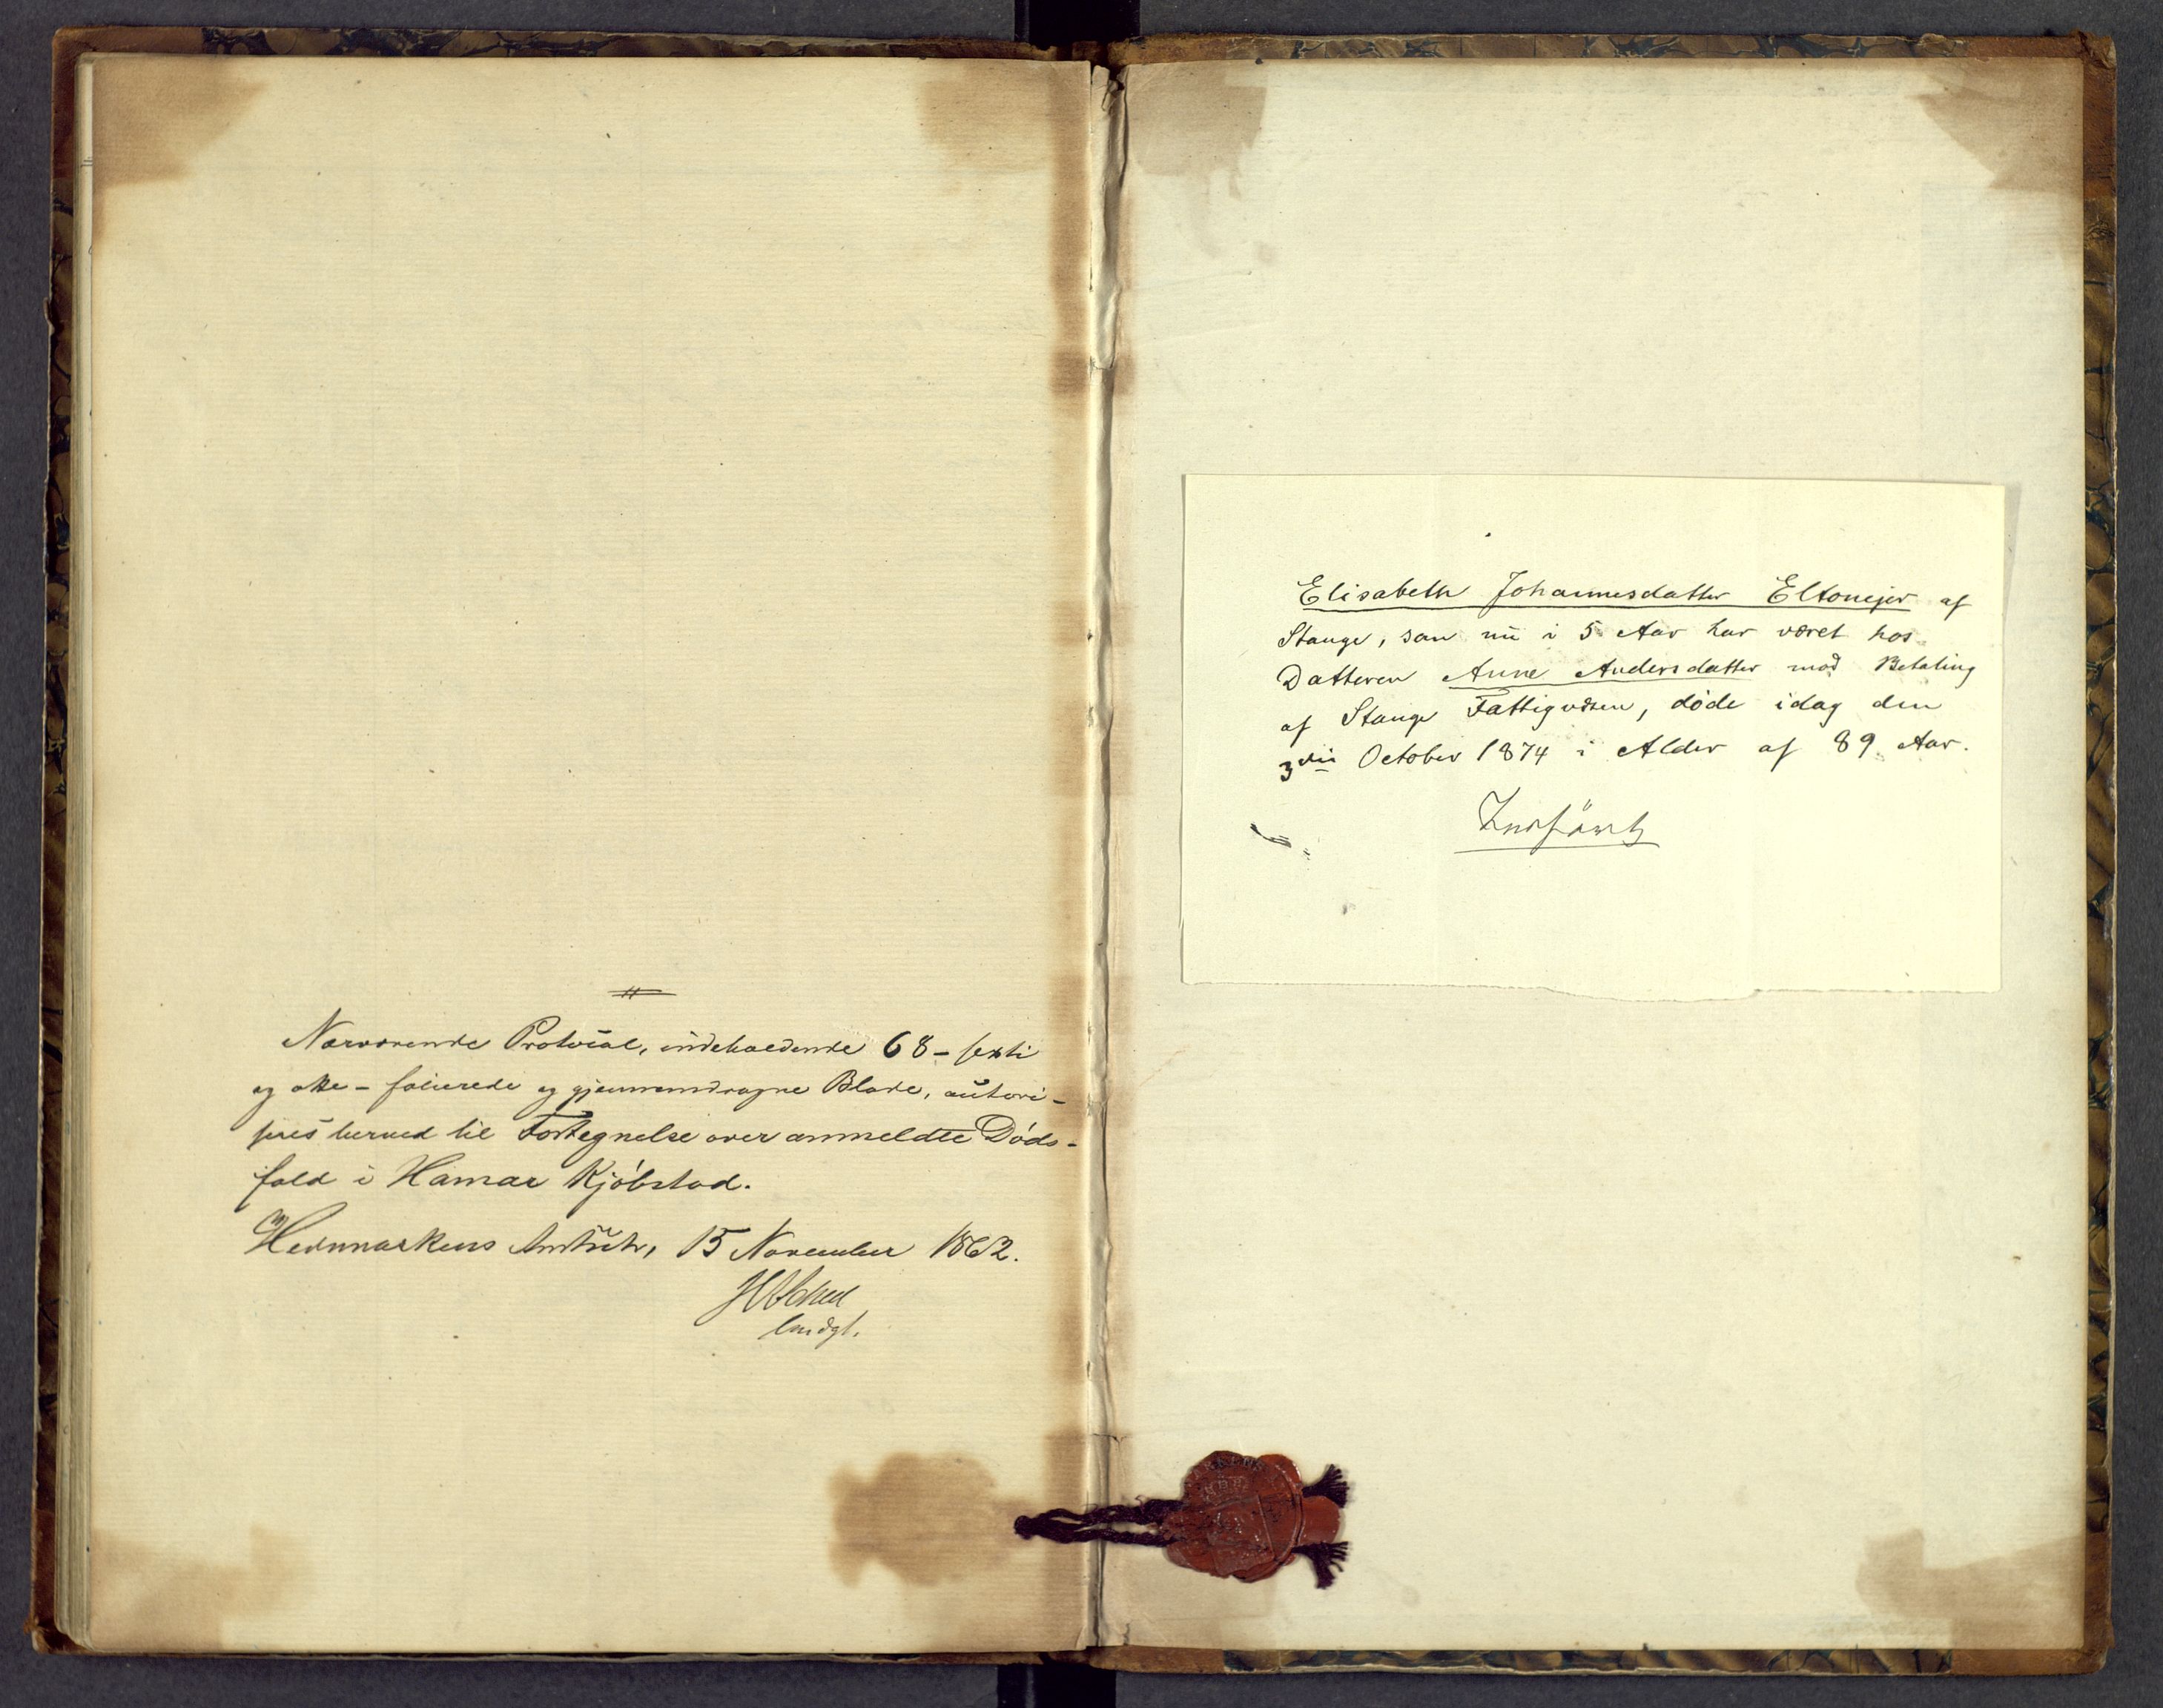 Nærværende Protocol, indeholdende 68 - sexti
og otte - folierede og gjennemdragne Blade, autori-
seres herved til Fortegnelse over anmeldte Døds-
fald i Hamar Kjøbstad.
Hedemarkens Amt, 15 November 1862.
Elisabeth Johannesdatter Eltonejer af
Stange, som nu i 5 Aar har været hos
Datteren Anne Andersdatter mod Betaling
af Stange Fattigvæsen, døde idag den
3die October 1874 i Alder af 89 Aar.